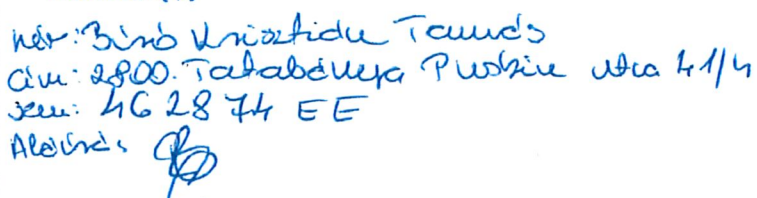 név: Bíró Krisztián Tamás
cím: 2800. Tatabánya Puskin utca 41/4
szem: 462874 EE
Aláírás